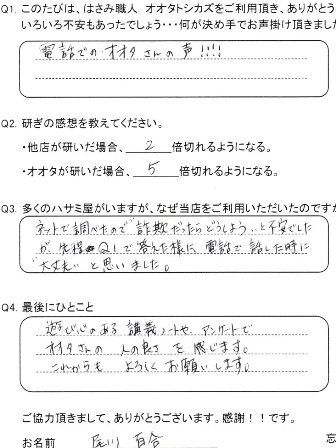 Q1. このたびは、はさみ職人 オオタトシカズをご利用頂き、ありがとう
いろいろ不安もあったでしょう・・・何が決め手でお声掛け頂きまし
電話での オオタ さんの 声!!!!
Q2. 研ぎの感想を教えてください。
・他店が研いだ場合、 2 倍切れるようになる。
・オオタが研いだ場合、 5 倍切れるようになる。
Q3. 多くのハサミ屋がいますが、なぜ当店をご利用いただいたのですか
ネットで調べたので "詐欺だったらどうしよう…"と不安でした
が、先程 Q1で答えた様に、電話で 話した時に
"大丈夫"と思いました。
Q4. 最後にひとこと
遊び心のある 講義ノートや、アンケートで
オオタさんの 人の良さ を 感じます。
これからも よろしく お願い します。
ご協力頂きまして、ありがとうございます。感謝!!です。
お名前 尾川 百合 忘